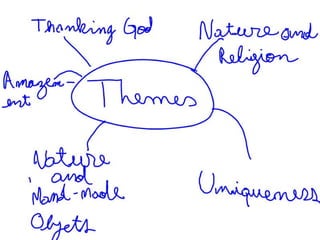 Thanking God
Nature and
Religion
Amazem-
ent
Themes
Nature
and
Mand-made
Objets
Uniqueness